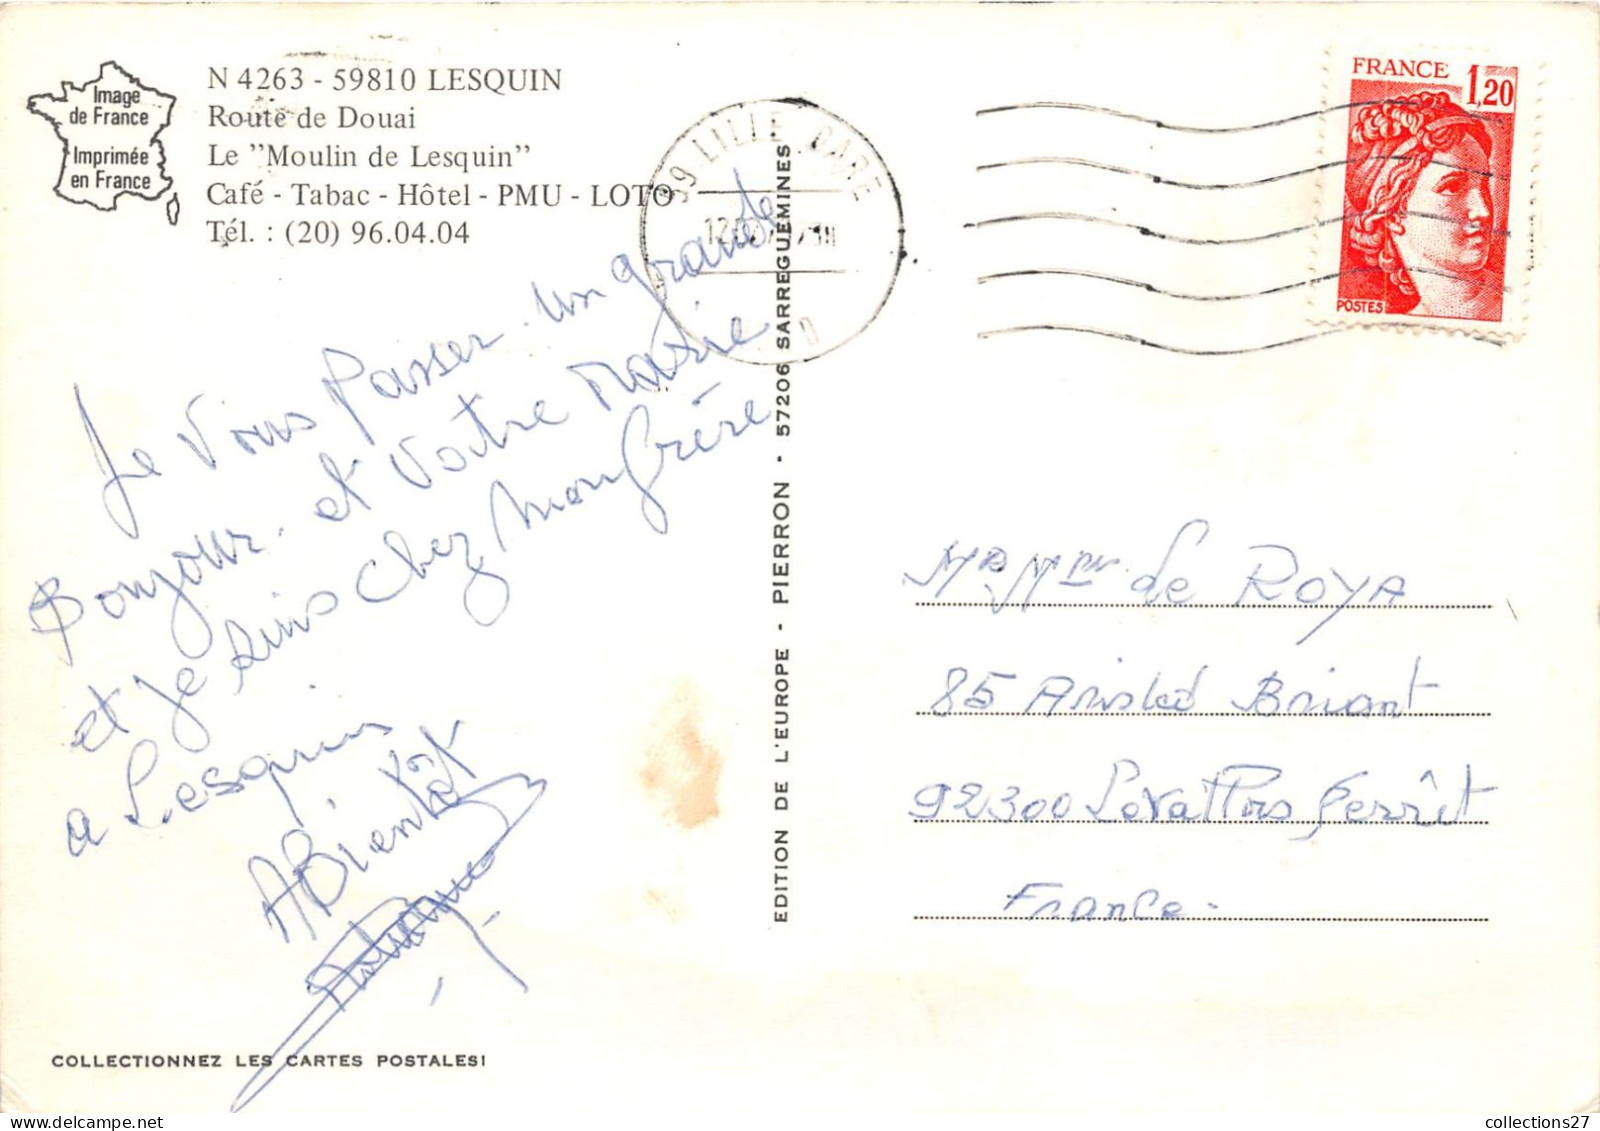 Image
de France
Imprimée
en France
N 4263 - 59810 LESQUIN
Route de Douai
Le "Moulin de Lesquin"
Café - Tabac - Hôtel - PMU - LOTO
Tél. : (20) 96.04.04
59 LILLE GARE
FRANCE 1,20
POSTES
Je vous passer un grande
Bonjour et votre
et je suis chez mon frère
a Lesquin
A Bientôt
COLLECTIONNEZ LES CARTES POSTALES!
EDITION DE L'EUROPE - PIERRON - 57206 SARREGUEMINES
Mr Mme de ROYA
85 Aristid Briant
92300 Levallois Perrêt
France.
collections27